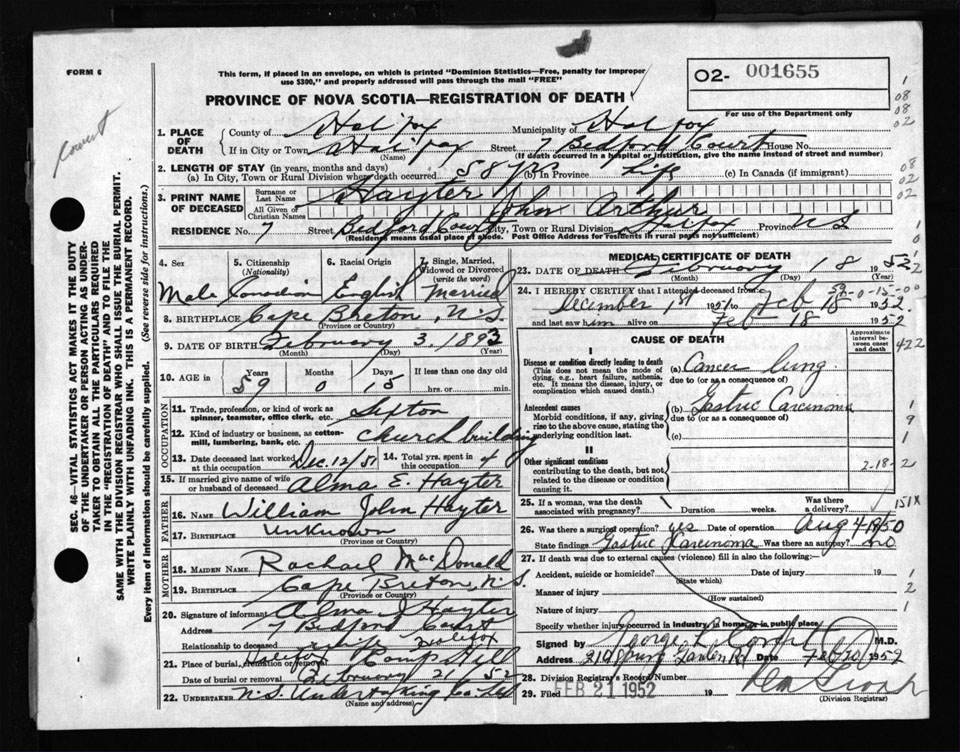 FORM 6
This form, if placed in an envelope, on which is printed "Dominion Statistics—Free, penalty for improper
use $300," and properly addressed will pass through the mail "FREE"
O2- 001655
PROVINCE OF NOVA SCOTIA—REGISTRATION OF DEATH
For use of the Department only
1. PLACE OF DEATH County of Halifax Municipality of Halifax
If in City or Town Halifax (Name) Street 7 Bedford Court House No.
(If death occurred in a hospital or institution, give the name instead of street and number)
2. LENGTH OF STAY (in years, months and days)
(a) In City, Town or Rural Division where death occurred 58 (b) In Province Life (c) In Canada (if immigrant)
3. PRINT NAME OF DECEASED Surname or Last Name Hayter
All Given or Christian Names John Arthur
RESIDENCE No. 7 Street Bedford Court City, Town or Rural Division Halifax Province N S
(Residence means usual place of abode. Post Office Address for residents in rural parts not sufficient)
4. Sex Male
5. Citizenship (Nationality) Canadian
6. Racial Origin English
7. Single, Married, Widowed or Divorced (write the word) Married
8. BIRTHPLACE Cape Breton, N.S.
(Province or Country)
9. DATE OF BIRTH February 3, 1893
(Month) (Day) (Year)
10. AGE in Years 59 Months 0 Days 15 If less than one day old hrs. or min.
OCCUPATION
11. Trade, profession, or kind of work as spinner, teamster, office clerk, etc. Sexton
12. Kind of industry or business, as cotton-mill, lumbering, bank, etc. church building
13. Date deceased last worked at this occupation Dec. 12/51 14. Total yrs. spent in this occupation 4
15. If married give name of wife or husband of deceased Alma E. Hayter
FATHER
16. NAME William John Hayter
17. BIRTHPLACE unknown
(Province or Country)
MOTHER
18. MAIDEN NAME Rachael MacDonald
19. BIRTHPLACE Cape Breton, N.S.
(Province or Country)
20. Signature of informant Alma Hayter
Address 7 Bedford Court
Relationship to deceased wife Halifax
21. Place of burial, cremation or removal Halifax Camp Hill
Date of burial or removal February 21/52
22. UNDERTAKER N.S. Undertaking Co Ltd
(Name and address)
MEDICAL CERTIFICATE OF DEATH
23. DATE OF DEATH February 18 1952
(Month) (Day)
24. I HEREBY CERTIFY that I attended deceased from
December 1st 1951 to Feb 18 1952
and last saw him alive on Feb 18 1952
59-0-15-00
CAUSE OF DEATH
Approximate interval between onset and death
I
Disease or condition directly leading to death
(This does not mean the mode of dying, e.g., heart failure, asthenia, etc. It means the disease, injury, or complication which caused death.)
(a) Cancer lung
due to (or as a consequence of)
Antecedent causes
Morbid conditions, if any, giving rise to the above cause, stating the underlying condition last.
(b) Gastric Carcinoma
due to (or as a consequence of)
(c)
II
Other significant conditions
contributing to the death, but not related to the disease or condition causing it.
2-18-2
25. If a woman, was the death associated with pregnancy? Duration weeks. Was there a delivery?
151X
26. Was there a surgical operation? yes Date of operation Aug 4 1950
State findings Gastric Carcinoma Was there an autopsy? no
27. If death was due to external causes (violence) fill in also the following:
Accident, suicide or homicide? (State which) Date of injury 19
Manner of injury
(How sustained)
Nature of injury
Specify whether injury occurred in industry, in home, or in public place
Signed by George M.D.
Address 21 Spring Garden Rd Date Feb 20 1952
28. Division Registrar's Record Number
29. Filed FEB 21 1952 19
(Division Registrar)
SEC. 46—VITAL STATISTICS ACT MAKES IT THE DUTY
OF THE UNDERTAKER OR PERSON ACTING AS UNDERTAKER
TO OBTAIN ALL THE PARTICULARS REQUIRED
IN THE "REGISTRATION OF DEATH" AND TO FILE THE
SAME WITH THE DIVISION REGISTRAR WHO SHALL ISSUE THE BURIAL PERMIT.
WRITE PLAINLY WITH UNFADING INK. THIS IS A PERMANENT RECORD.
Every item of Information should be carefully supplied. (See reverse side for instructions.)